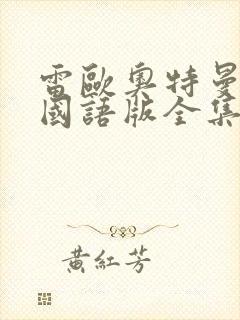 雷歐奧特曼
國語版全集
黃紅芳